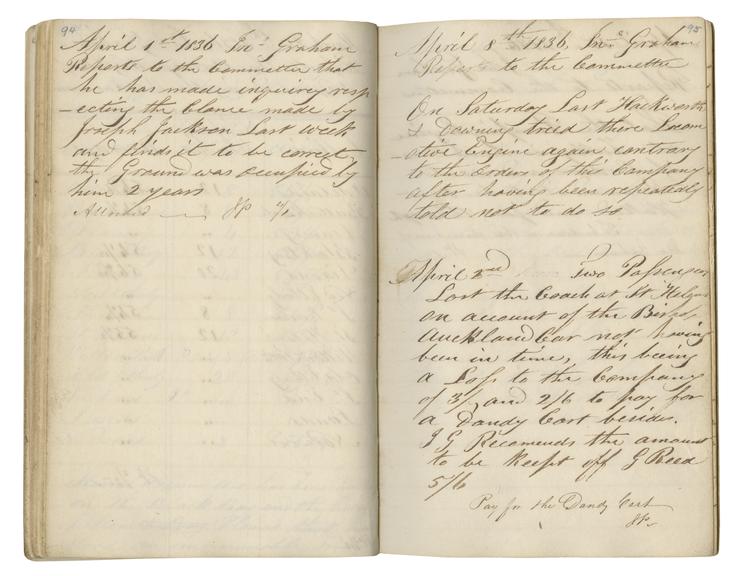 94
April 1st 1836 Jno Graham
Reports to the Committee that
he has made inquirey resp
-ecting the clame made by
Joseph Jackson Last week
and finds it to be correct
the Ground was occupied by
him 2 years
Allowed — JP
95
April 8th 1836, Jno Graham
Reports to the Committee
On Saturday Last Hackworth
& Downing tried there Locom
-otive Engine again contrary
to the orders of this Company
after having been repeatedly
told not to do so
April 2nd Two Passengers
Lost the Coach at St Helens
on account of the Bishop
Auckland Car not having
been in time, this being
a Loss to the Company
of 3/ and 2/6 to pay for
a Dandy Cart besides.
J G Recomends the amount
to be Keept off G Reed
5/6
Pay for the Dandy Cart
JP